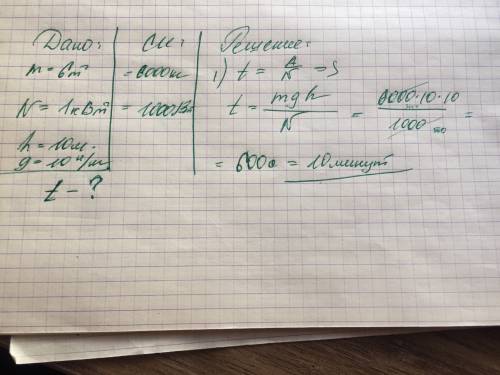 Дано:
m = 6т
N = 1кВт
h = 10м.
g = 10 н/кг
t - ?
СИ:
= 6000кг
= 1000Вт
Решение:
1) t = A/N => 
t = mgh/N = 6000·10·10/1000 =
= 600с = 10минут